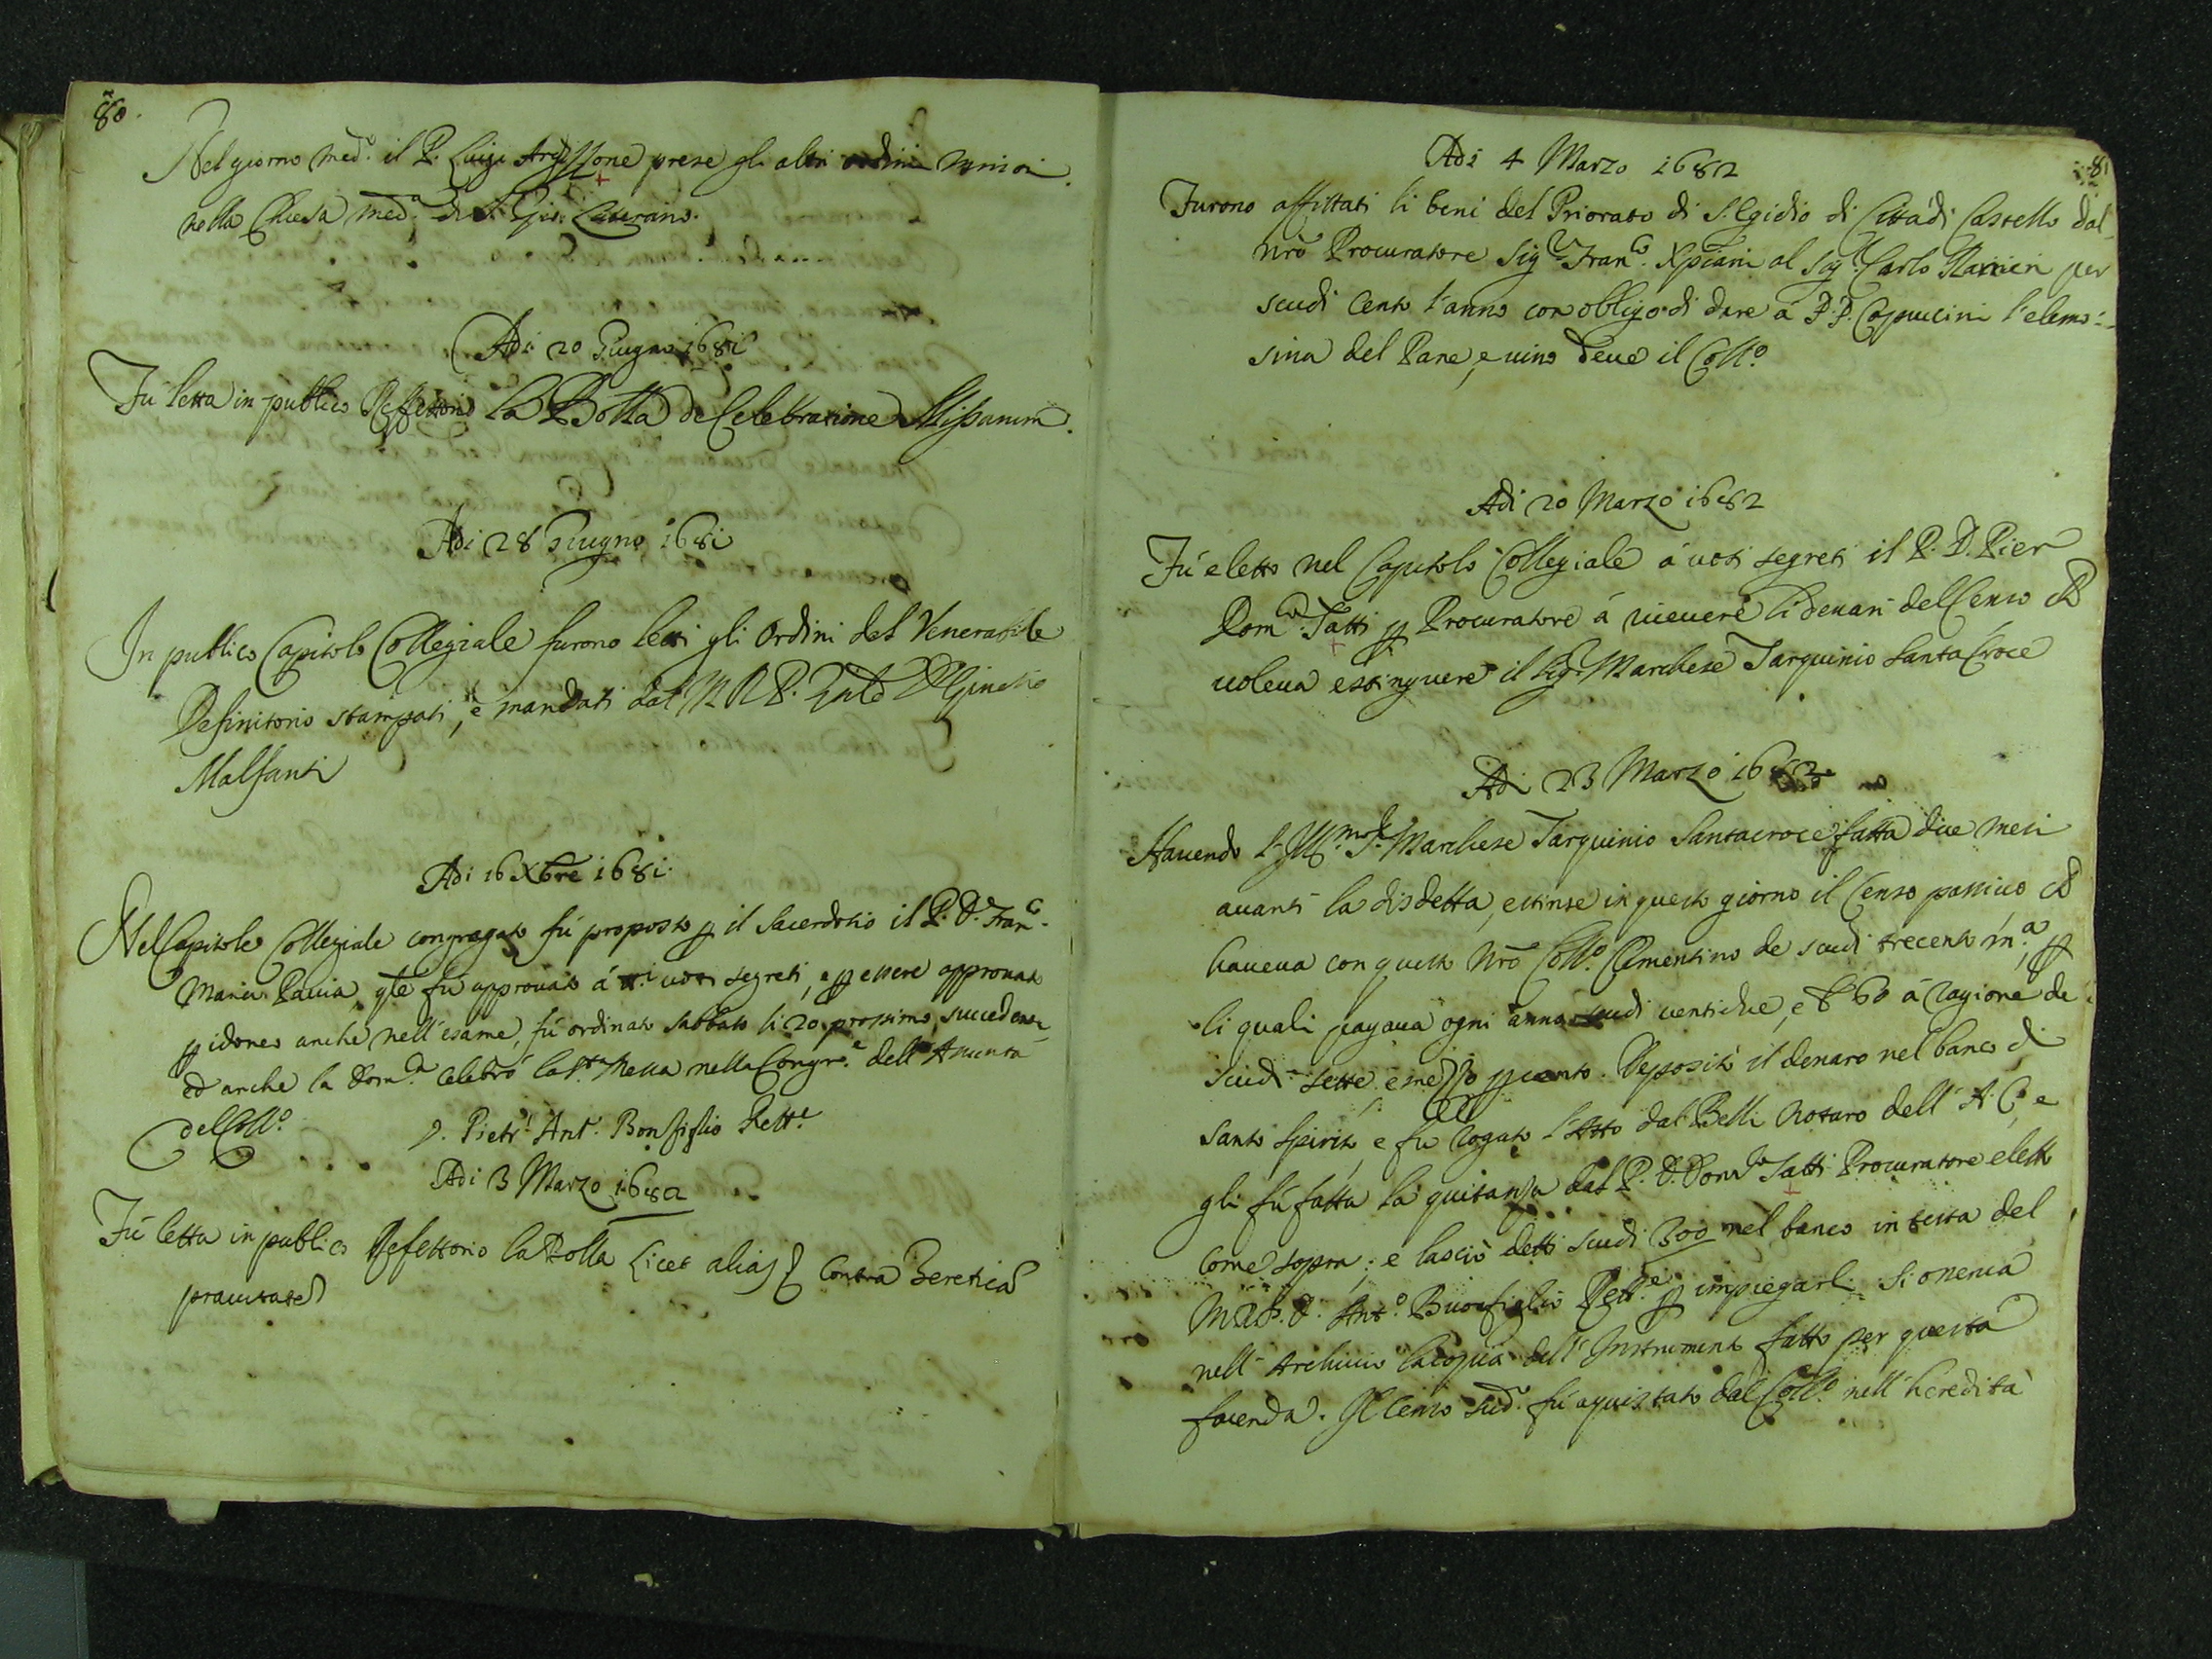 80.
Nel giorno med.º il P. Luigi prese gli altri ordini minori
nella Chiesa med.ª di S. Gio: Laterano.
Adi 20 Giugno 1681
Fú letta in publico Reffettorio la Bolla de Celebratione Missarum.
Adi 28 Giugno 1681
In publico Capitolo Collegiale furono letti gli Ordini del Venerabile
Definitorio stampati, e mandati dal M R P.
Malfanti
Adi 16 Xbre 1681.
Nel Capitolo Collegiale congregato fú proposto p il Sacerdotio il P. D. Fran.co
Maria Pavia, qle fu approuato á voti segreti, e p essere approuato
p idoneo anche nell'esame, fú ordinato Sabbato li 20 prossimo, succedente
ed anche la Dom.ca celebró la S.ta Messa nella Congr.e dell'Assunta
del Coll.º
D. Pietr. Ant. Bonfiglio Rett.e
Adi 3 Marzo 1682
Fú letta in publico Refettorio la Bolla Licet alias contra heretica
prauitate
81
Adi 4 Marzo 1682
Furono affittati li beni del Priorato di S. Egidio di Cittá di Castello dal
nrõ Procuratore Sig.r Fran.co Xpiani al Sig.r Carlo Ranieri per
scudi cento l'anno con obligo di dare á P.P. Capucini l'elemo-
sina del Pane, e uino deue il Coll.º
Adi 20 Marzo 1682
Fú eletto nel Capitolo Collegiale á uoti segreti il P. D. Pier
Dom.co Tatti p Procuratore á riceuere li denari del Censo
uoleua estinguere il Sig.r Marchese Tarquinio Santa Croce
Adi 23 Marzo 1682
Hauendo l'Ill.mo S. Marchese Tarquinio Santacroce fatta due mesi
auanti la disdetta, estinse in questo giorno il Censo passiuo
haueua con questo nrõ Coll.º Clementino de scudi trecento m.ª, p
li quali pagaua ogni anno scudi uentidue, e b 60 á ragione de
scudi sette e mezzo p cento. Depositó il denaro nel banco di
Santo Spirito, e fu rogato l'Atto dal Belli notaro dell'A. C. e
gli fú fatta la quitanza dal P. D. Dom.co Tatti Procuratore eletto
come sopra; e lasció detti scudi 300 nel banco in testa del
M.R.P. D. Ant.º Buonfiglio Rett.e p impiegarli. Si
nell'Archiuio la copia dell'Instrumento fatto per questa
facenda. Il Censo sud.º fú aquistato dal Coll.º nell'hereditá